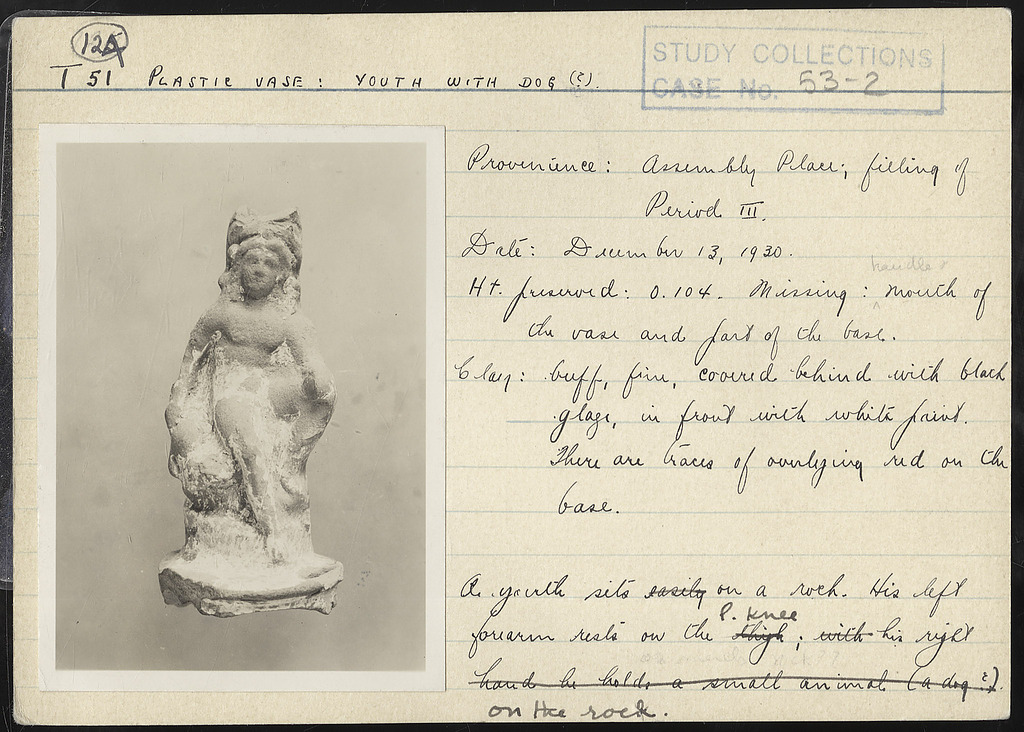 125
T 51 PLASTIC VASE: YOUTH WITH DOG (?).
STUDY COLLECTIONS
CASE No. 53-2
Provenience: Assembly Place; filling of
Period III.
Date: December 13, 1930.
handle &
Ht. preserved: 0.104. Missing: mouth of
the vase and part of the base.
Clay: buff, fine, covered behind with black
glaze, in front with white paint.
There are traces of overlying red on the
base.
A youth sits easily on a rock. His left
l. knee
forearm rests on the thigh; with his right
hand he holds a small animal (a dog?).
on the rock.